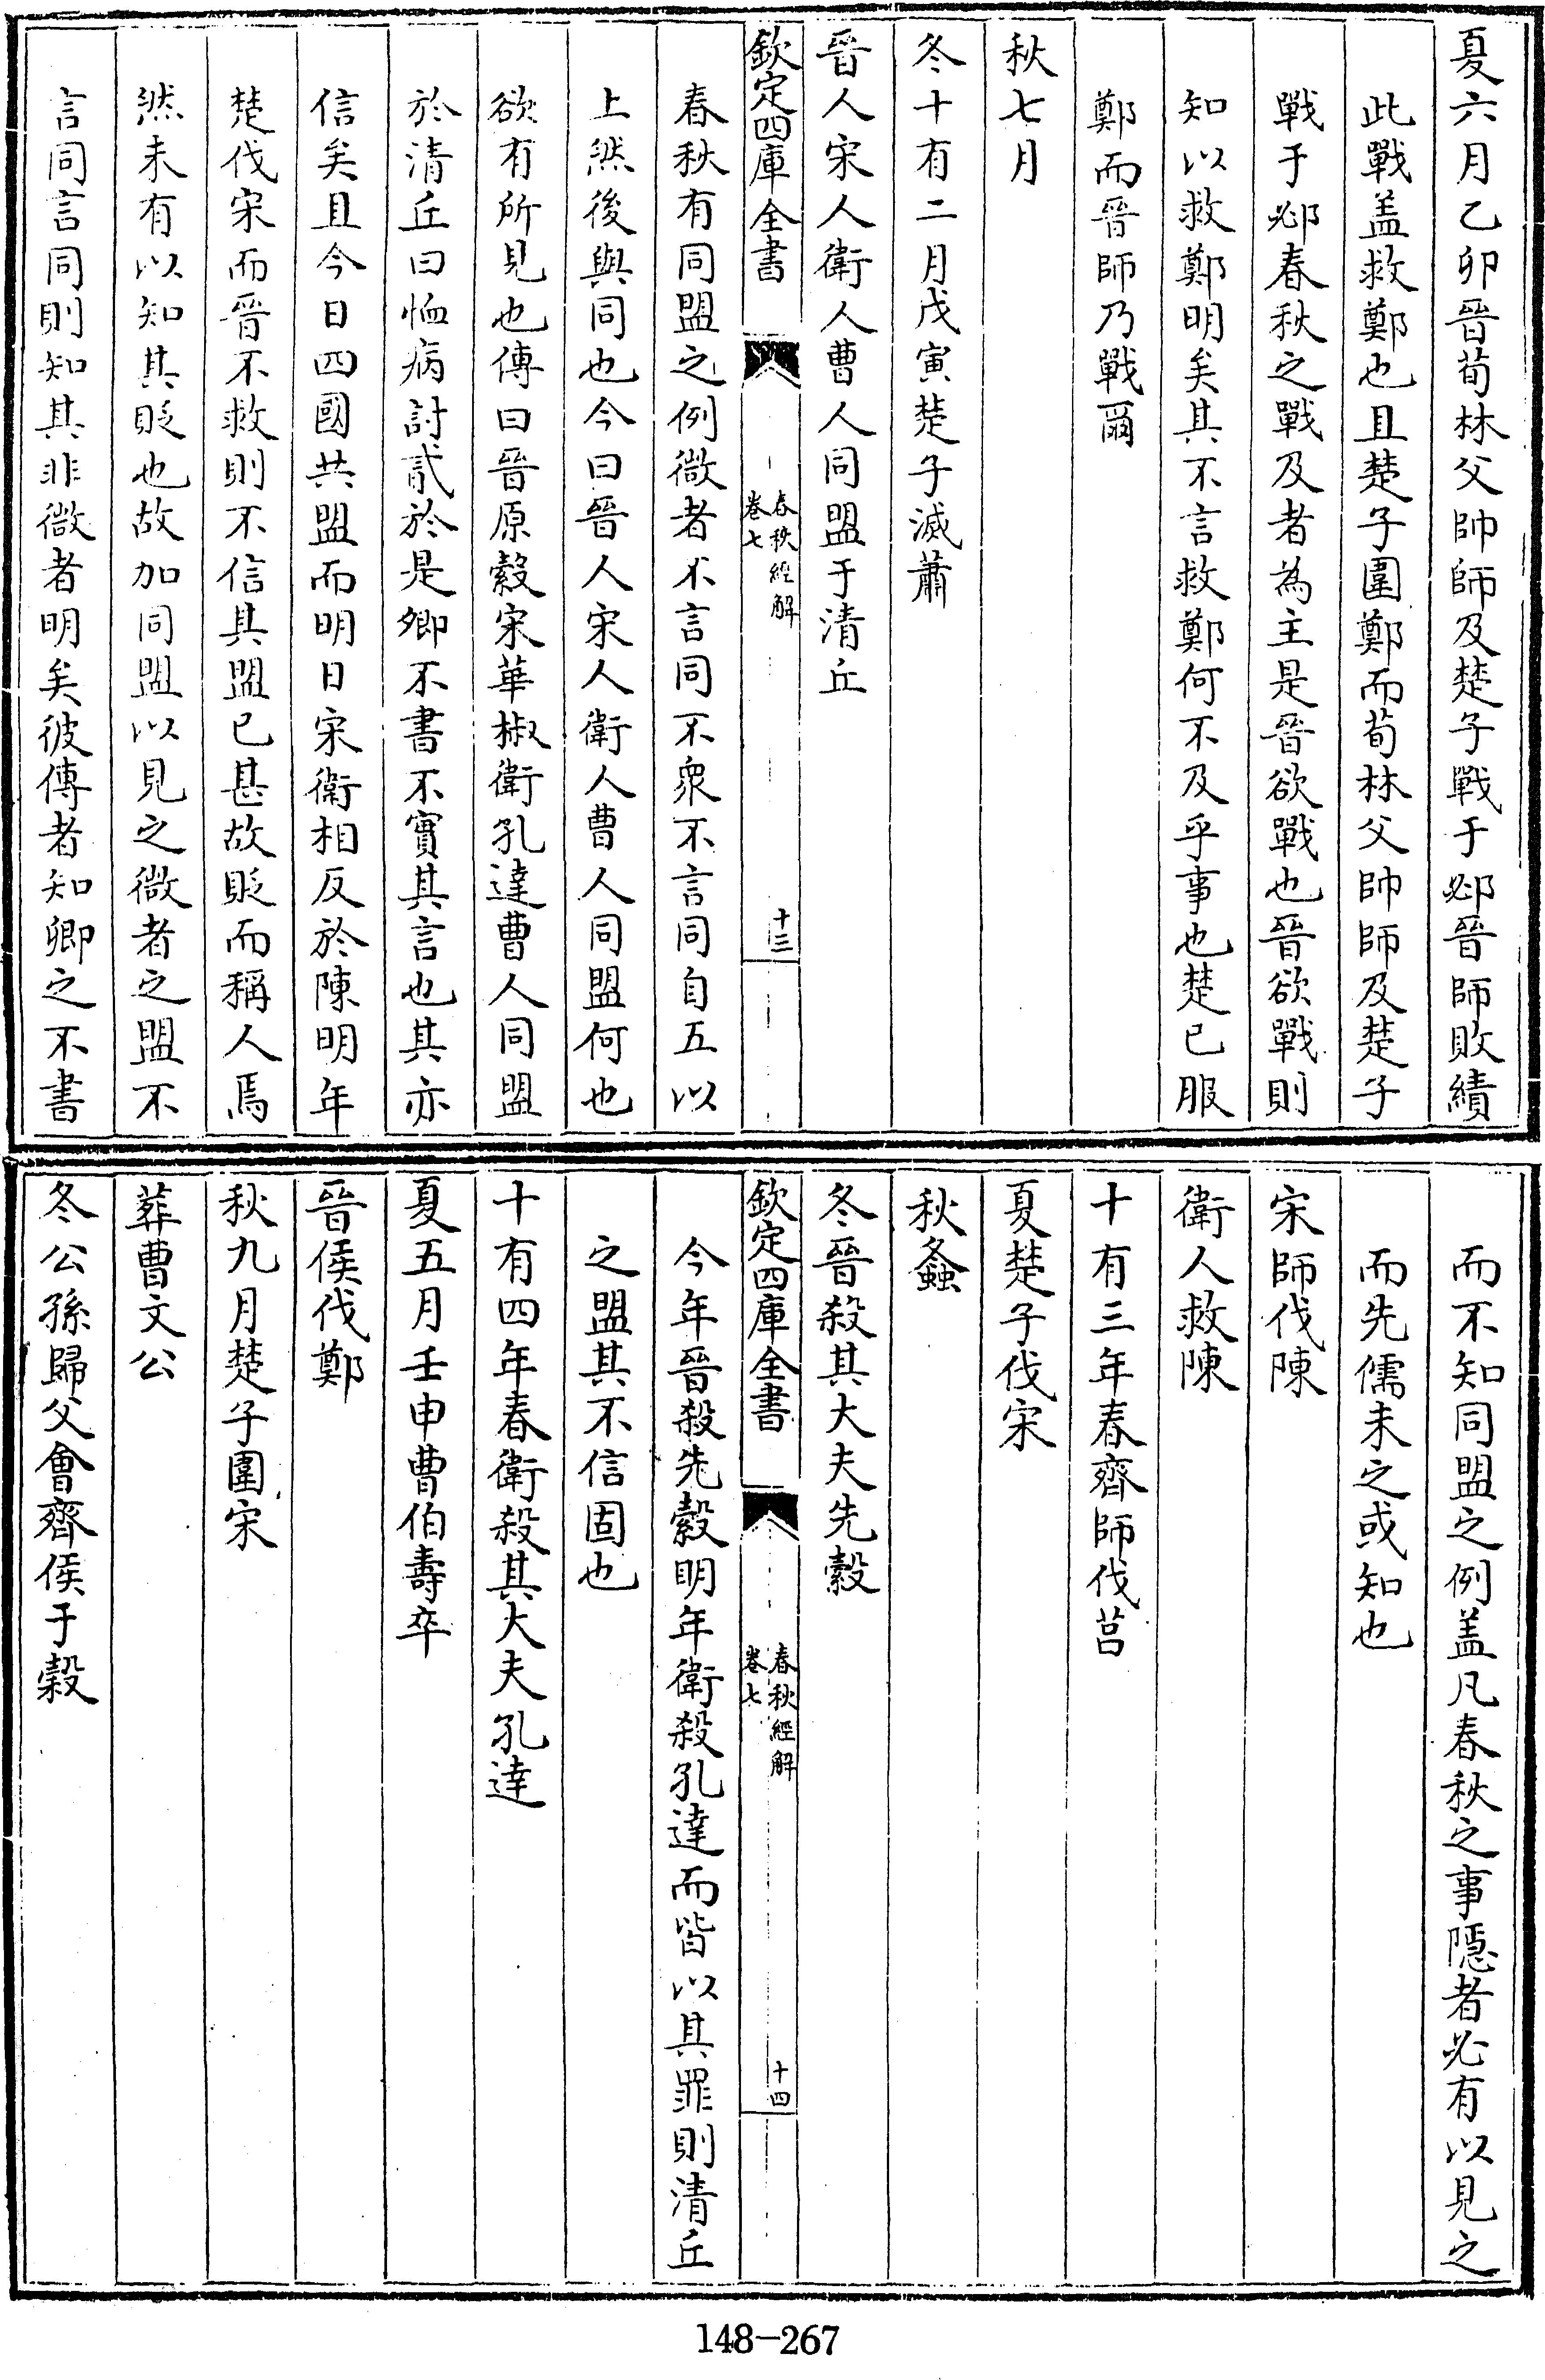 夏六月乙卯晉荀林父帥師及楚子戰于邲晉師敗績
此戰盖救鄭也且楚子圍鄭而荀林父帥師及楚子
戰于邲春秋之戰及者為主是晉欲戰也晉欲戰則
知以救鄭明矣其不言救鄭何不及乎事也楚已服
鄭而晉師乃戰爾
秋七月
冬十有二月戊寅楚子滅蕭
晉人宋人衛人曹人同盟于清丘
欽定四庫全書
春秋經解
卷七
十三
春秋有同盟之例微者不言同不衆不言同自五以
上然後與同也今曰晉人宋人衛人曹人同盟何也
欲有所見也傳曰晉原縠宋華椒衛孔達曹人同盟
於清丘曰恤病討貳於是卿不書不實其言也其亦
信矣且今日四國共盟而明日宋衛相反於陳明年
楚伐宋而晉不救則不信其盟已甚故貶而稱人焉
然未有以知其貶也故加同盟以見之微者之盟不
言同言同則知其非微者明矣彼傳者知卿之不書
而不知同盟之例盖凡春秋之事隱者必有以見之
而先儒未之或知也
宋師伐陳
衛人救陳
十有三年春齊師伐莒
夏楚子伐宋
秋螽
冬晉殺其大夫先縠
欽定四庫全書
春秋經解
卷七
十四
今年晉殺先縠明年衛殺孔達而皆以其罪則清丘
之盟其不信固也
十有四年春衛殺其大夫孔達
夏五月壬申曹伯壽卒
晉侯伐鄭
秋九月楚子圍宋
葬曹文公
冬公孫歸父會齊侯于穀
148-267